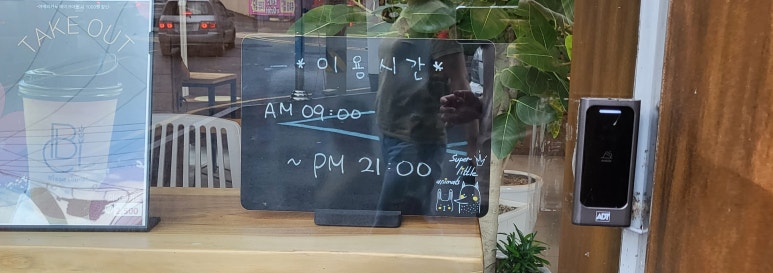 TAKE OUT
B
*이용시간*
AM 09:00
~ PM 21:00
Super
little
animals
ADT